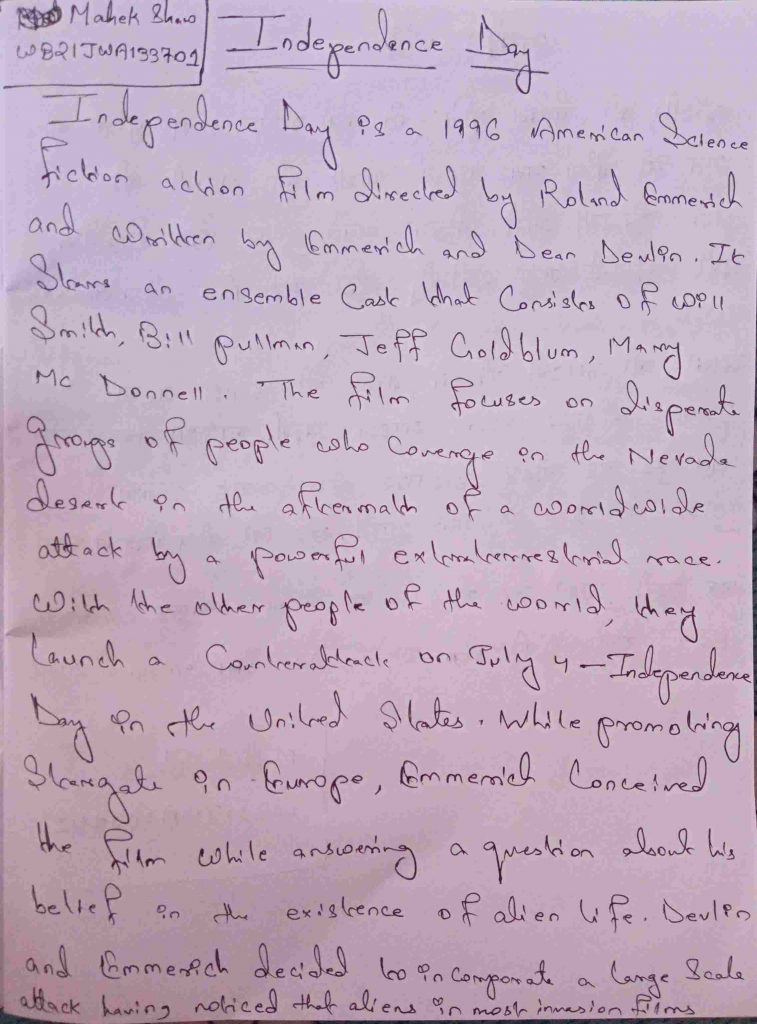 Mahek Shaw
WB21JWA133701
Independence Day
Independence Day is a 1996 American Science
fiction action film directed by Roland Emmerich
and written by Emmerich and Dean Devlin. It
Stars an ensemble Cast that Consists of Will
Smith, Bill pullman, Jeff Goldblum, Mary
Mc Donnell. The film focuses on disperate
groups of people who Coverge in the Nevada
desert in the aftermath of a worldwide
attack by a powerful extraterrestrial race.
With the other people of the world, they
Launch a Counterattack on July 4 - Independence
Day in the United States. While promoting
Stargate in Europe, Emmerich Conceived
the film while answering a question about his
belief in the existence of alien life. Devlin
and Emmerich decided to incorporate a large Scale
attack having noticed that aliens in most invasion films